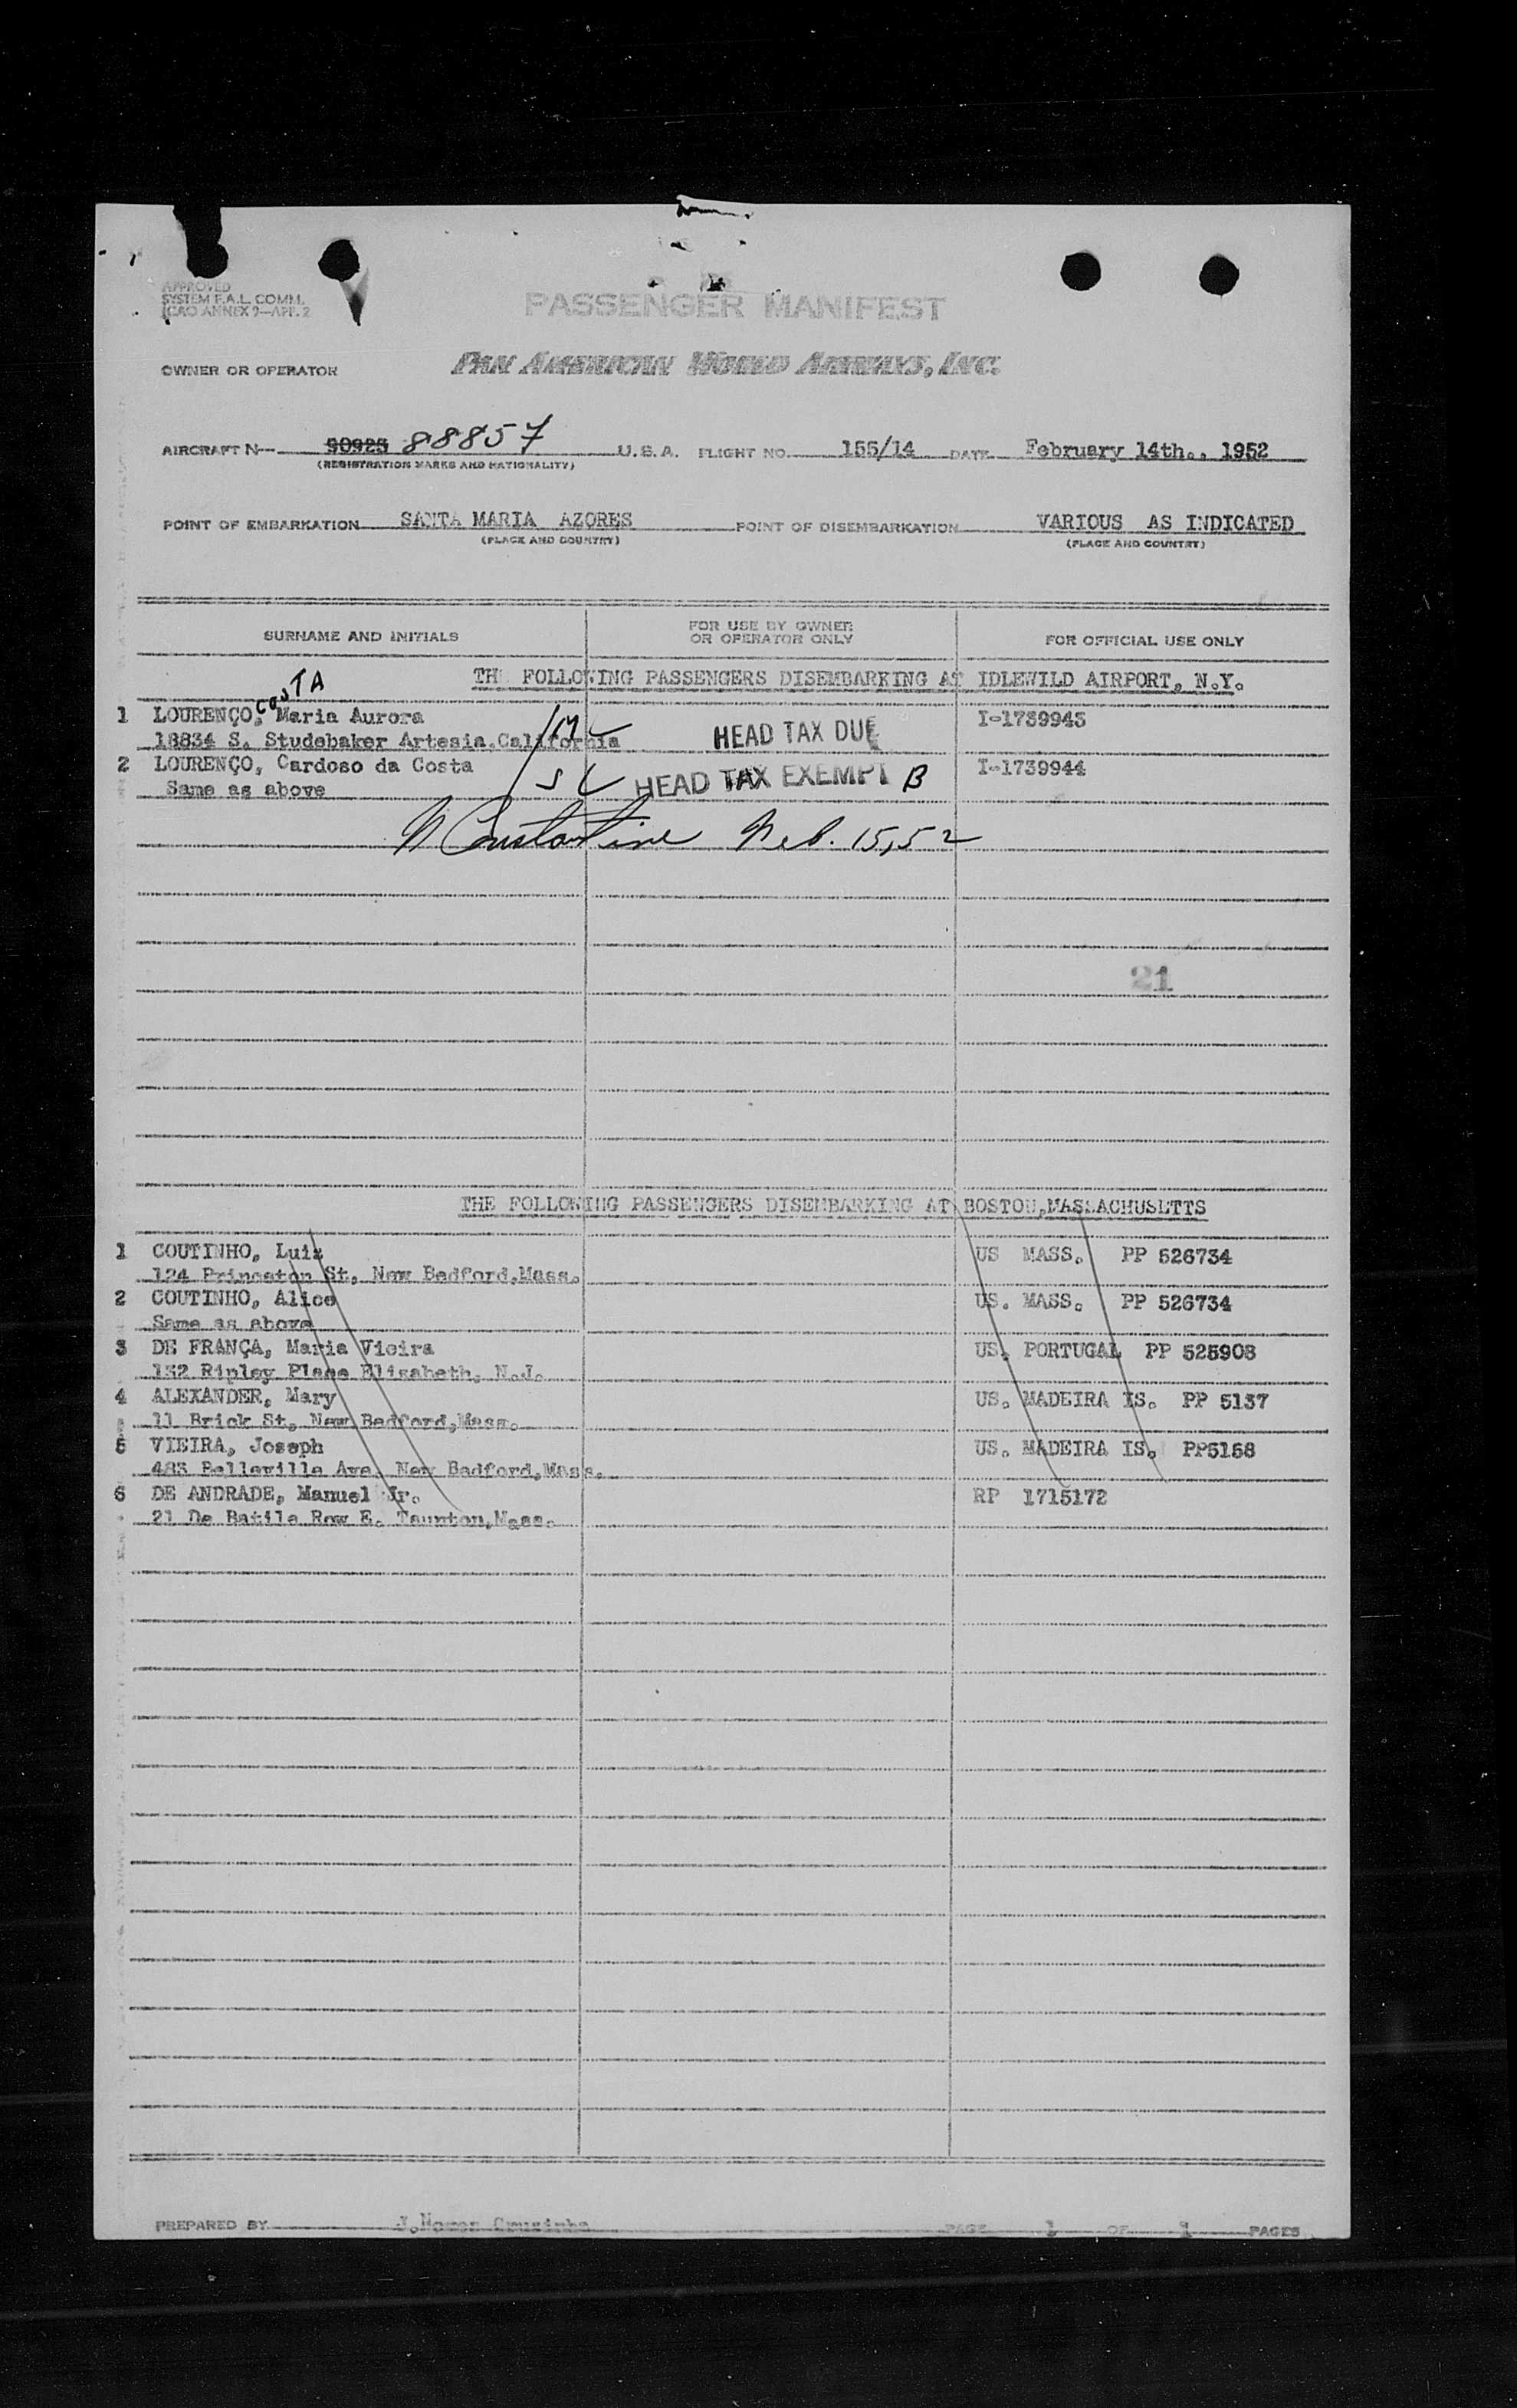 APPROVED
SYSTEM F.A.L. COMM.
ICAO ANNEX 9—APP. 2
PASSENGER MANIFEST
OWNER OR OPERATOR PAN AMERICAN WORLD AIRWAYS, INC.
AIRCRAFT N— 90923 88857 U.S.A. FLIGHT NO. 155/14 DATE February 14th., 1952
(REGISTRATION MARKS AND NATIONALITY)
POINT OF EMBARKATION SANTA MARIA AZORES POINT OF DISEMBARKATION VARIOUS AS INDICATED
(PLACE AND COUNTRY) (PLACE AND COUNTRY)
SURNAME AND INITIALS FOR USE BY OWNER OR OPERATOR ONLY FOR OFFICIAL USE ONLY
TH FOLLOWING PASSENGERS DISEMBARKING AT IDLEWILD AIRPORT, N.Y.
COSTA
1 LOURENÇO, Maria Aurora I-1739943
18834 S. Studebaker Artesia, California HEAD TAX DUE
2 LOURENÇO, Cardoso da Costa I-1739944
Same as above HEAD TAX EXEMPT B
N Constantine Feb. 15, 52
21
THE FOLLOWING PASSENGERS DISEMBARKING AT BOSTON, MASSACHUSETTS
1 COUTINHO, Luiz US MASS. PP 526734
124 Princeton St, New Bedford, Mass.
2 COUTINHO, Alice US. MASS. PP 526734
Same as above
3 DE FRANÇA, Maria Vieira US. PORTUGAL PP 525908
132 Ripley Place Elizabeth, N.J.
4 ALEXANDER, Mary US. MADEIRA IS. PP 5137
11 Brick St, New Bedford, Mass.
5 VIEIRA, Joseph US. MADEIRA IS. PP5158
483 Belleville Ave. New Bedford, Mass.
6 DE ANDRADE, Manuel Jr. RP 1715172
21 De Batile Row E. Taunton, Mass.
PREPARED BY PAGE 1 OF 1 PAGES